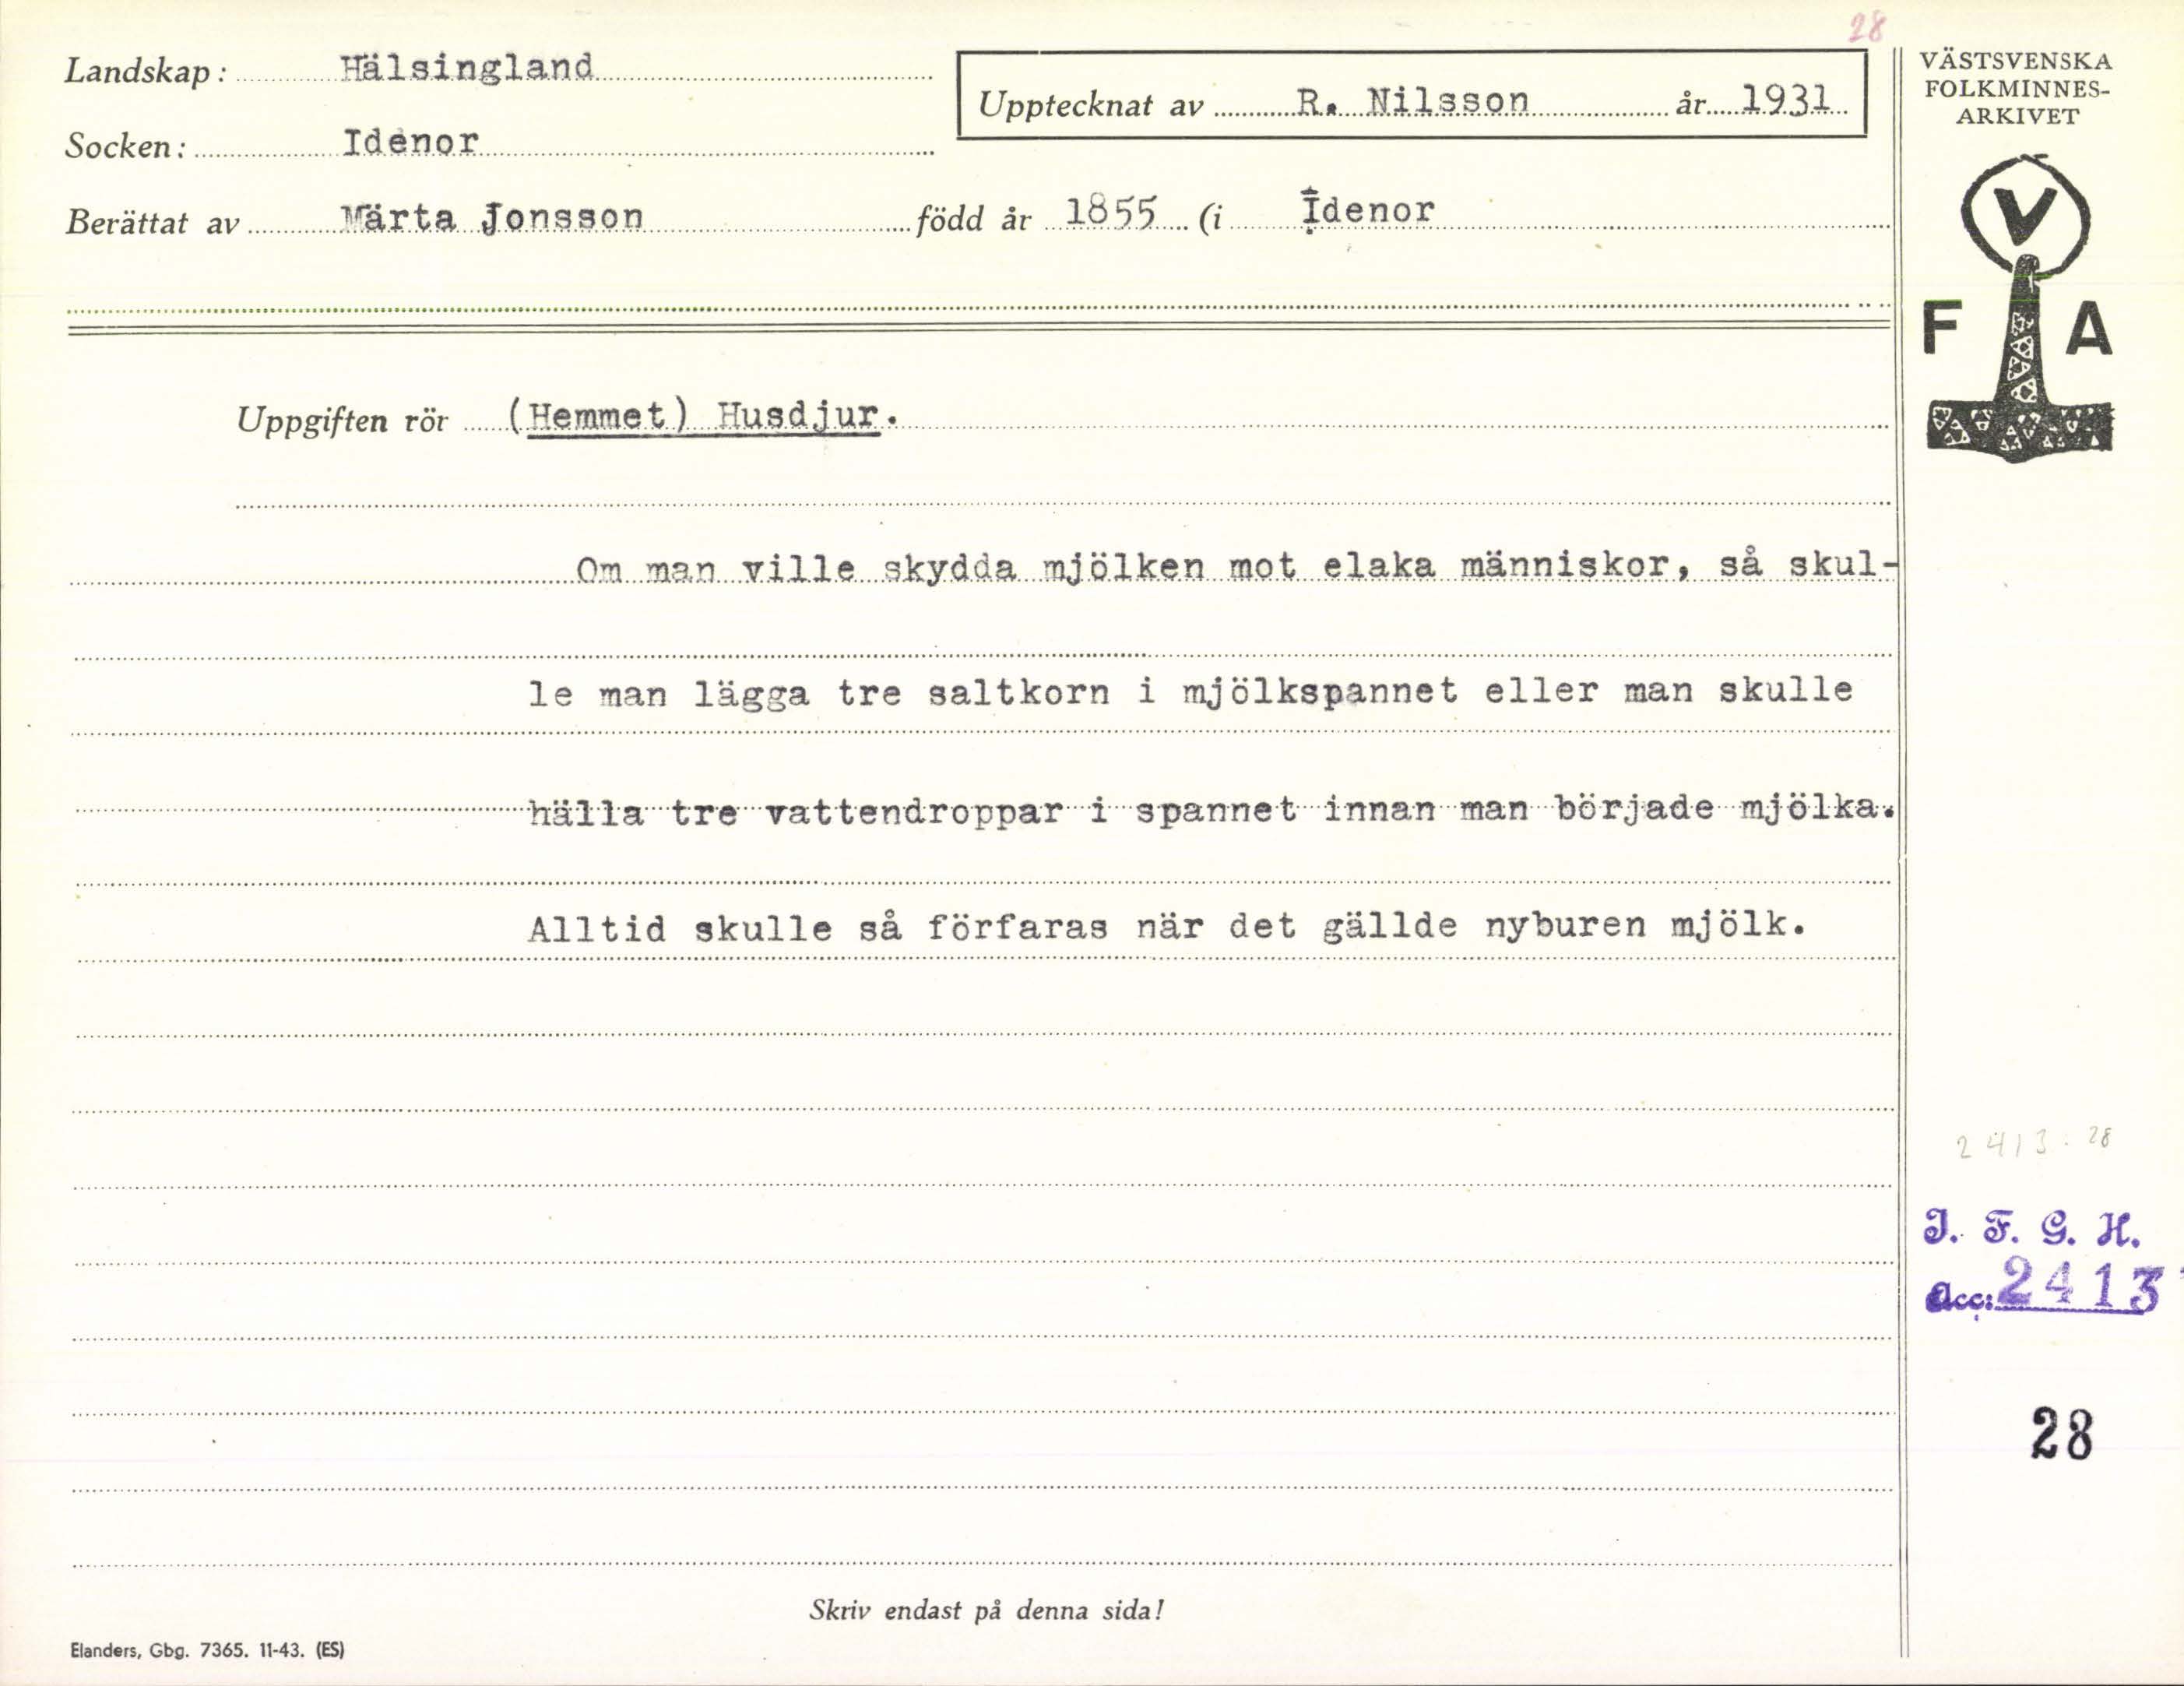 28
Landskap: Hälsingland
Upptecknat av R. Nilsson år 1931
Socken: Idenor
Berättat av Märta Jonsson född år 1855 (i Idenor
VÄSTSVENSKA
FOLKMINNES-
ARKIVET
V
F A
Uppgiften rör (Hemmet) Husdjur.
Om man ville skydda mjölken mot elaka människor, så skul-
le man lägga tre saltkorn i mjölkspannet eller man skulle
hälla tre vattendroppar i spannet innan man började mjölka.
Alltid skulle så förfaras när det gällde nyburen mjölk.
2413:28
I. F. G. H.
Acc: 2413
28
Skriv endast på denna sida!
Elanders, Gbg. 7365. 11-43. (ES)